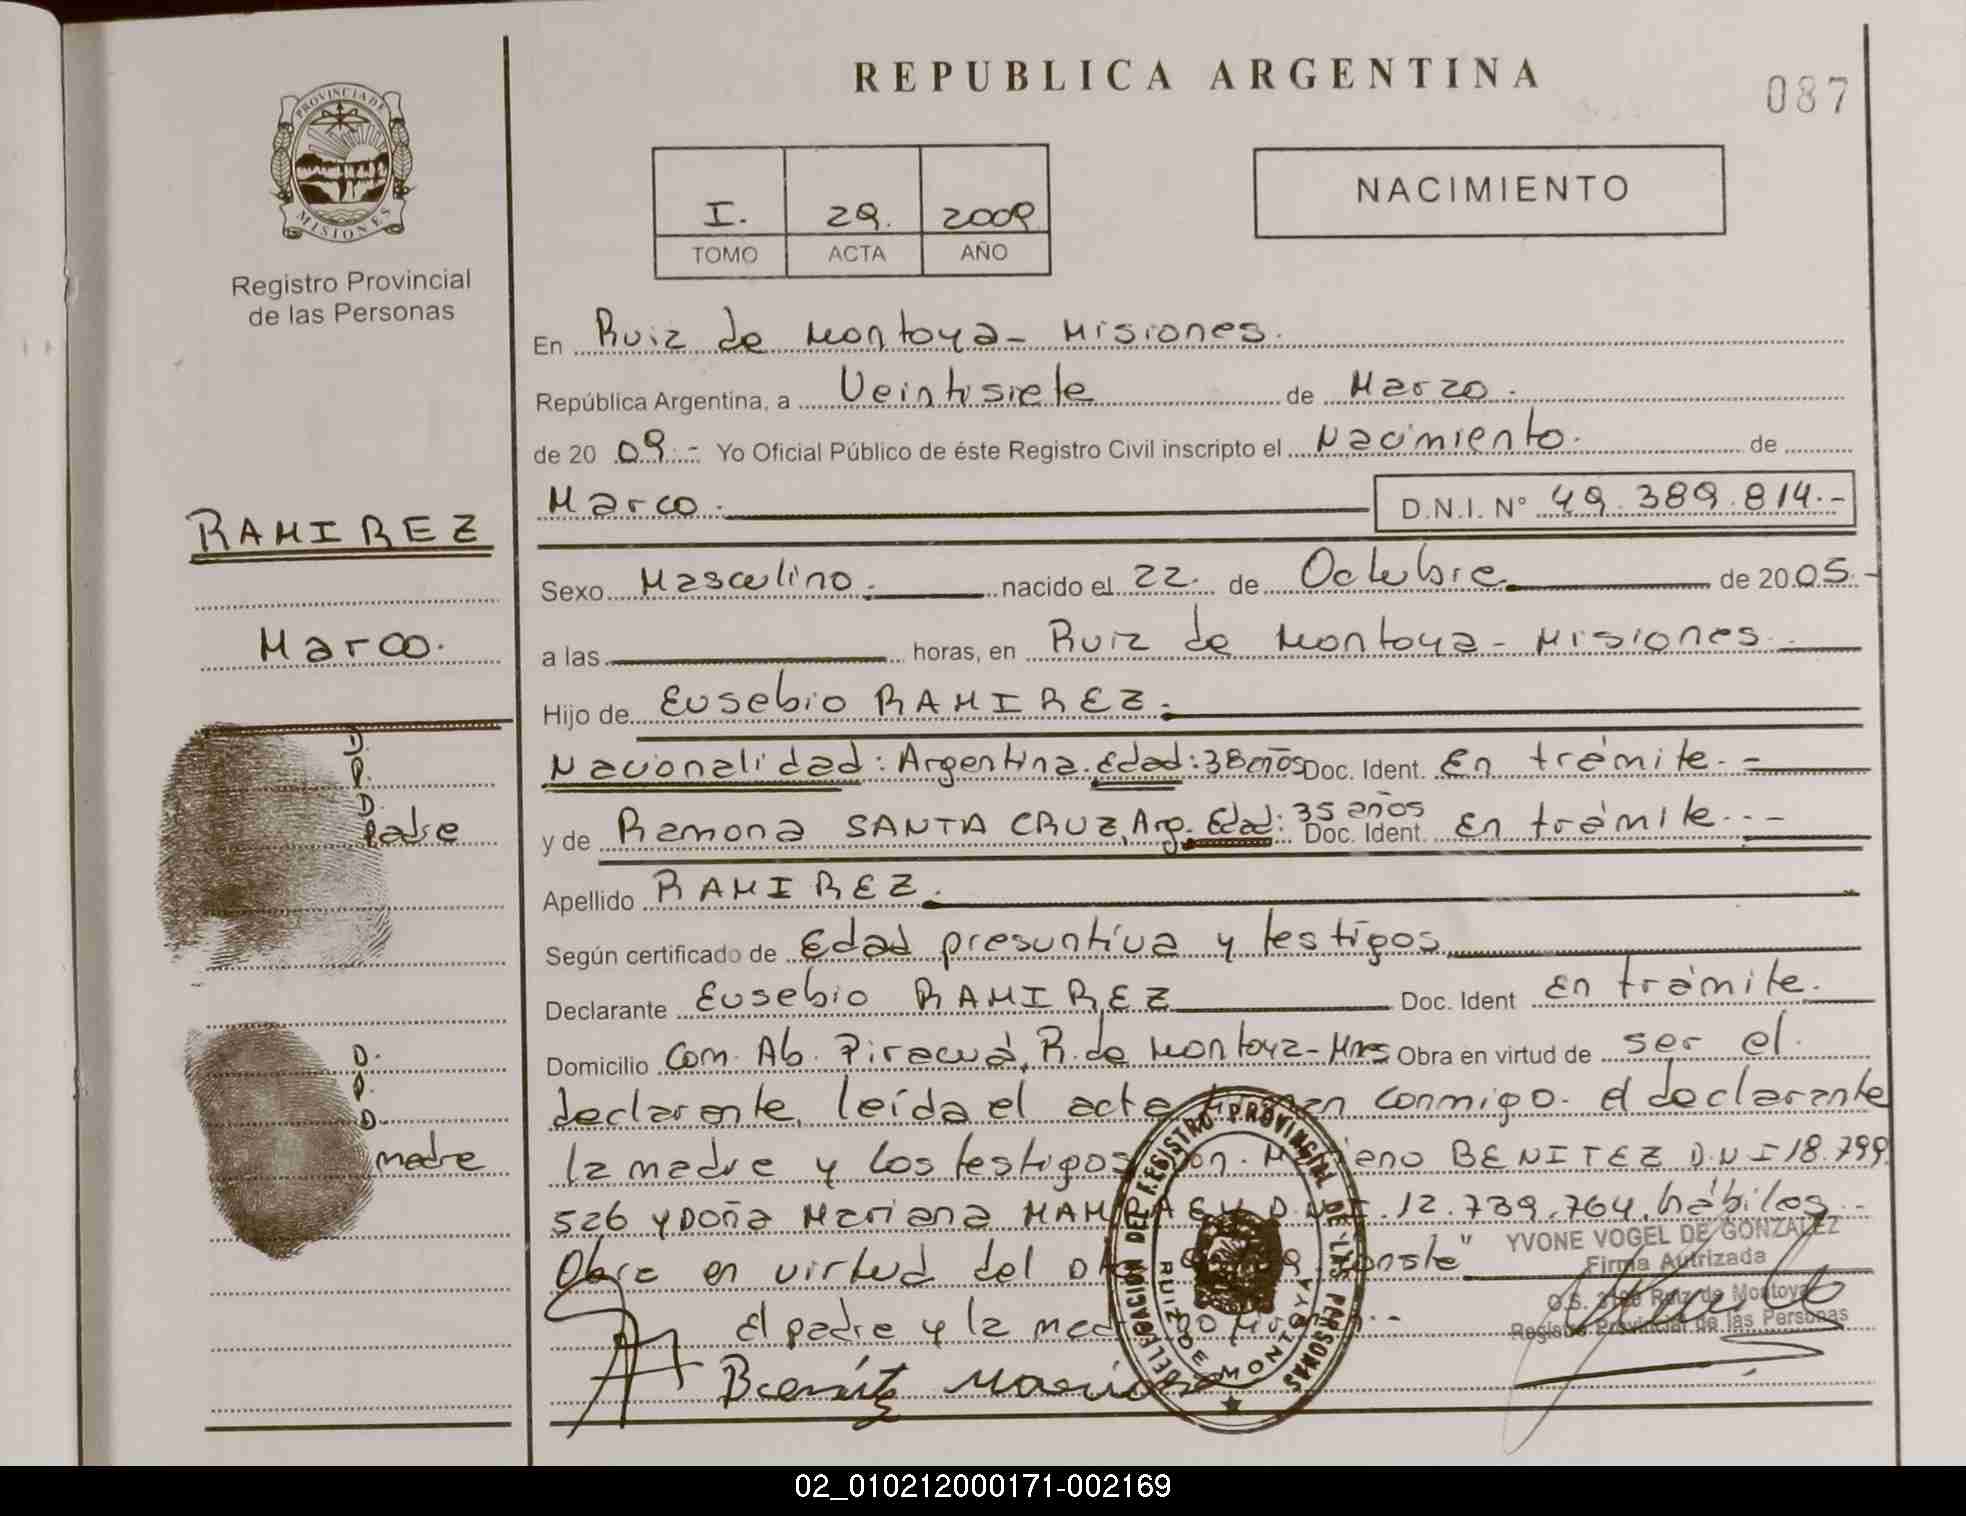 REPUBLICA ARGENTINA
087
PROVINCIA DE
MISIONES
Registro Provincial
de las Personas
I. 29. 2009
TOMO ACTA AÑO
NACIMIENTO
En Ruiz de Montoya - Misiones.
República Argentina, a Veintisiete de Marzo.
de 20 09.- Yo Oficial Público de éste Registro Civil inscripto el Nacimiento. de
Marco. D.N.I. N° 49.389.814.-
RAMIREZ
Marco.
Sexo Masculino. nacido el 22. de Octubre de 20 05.-
a las horas, en Ruiz de Montoya - Misiones.
Hijo de Eusebio RAMIREZ.
Nacionalidad: Argentina. Edad: 38 años Doc. Ident. En trámite. -
y de Ramona SANTA CRUZ, Arg. Edad: 35 años Doc. Ident. En trámite. . -
Apellido RAMIREZ.
Según certificado de Edad presuntiva y testigos
Declarante Eusebio RAMIREZ Doc. Ident En trámite.
Domicilio Com. Ab. Piracuá, R. de Montoya - Mnes Obra en virtud de ser el
declarante, leída el acta conmigo. el declarante
la madre y los testigos BENITEZ D.N.I 18.799.
526 y DOÑA Mariana 12.739.764, hábiles. -
Obra en virtud del
El padre y la
D.
P.
D.
Padre
D.
P.
D.
madre
DELEGACIÓN DEL REGISTRO PROVINCIAL DE LAS PERSONAS
RUIZ DE MONTOYA
YVONE VOGEL DE GONZALEZ
Firma Autrizada
O.S. Ruiz de Montoya
Registro Provincial de las Personas
02_010212000171-002169